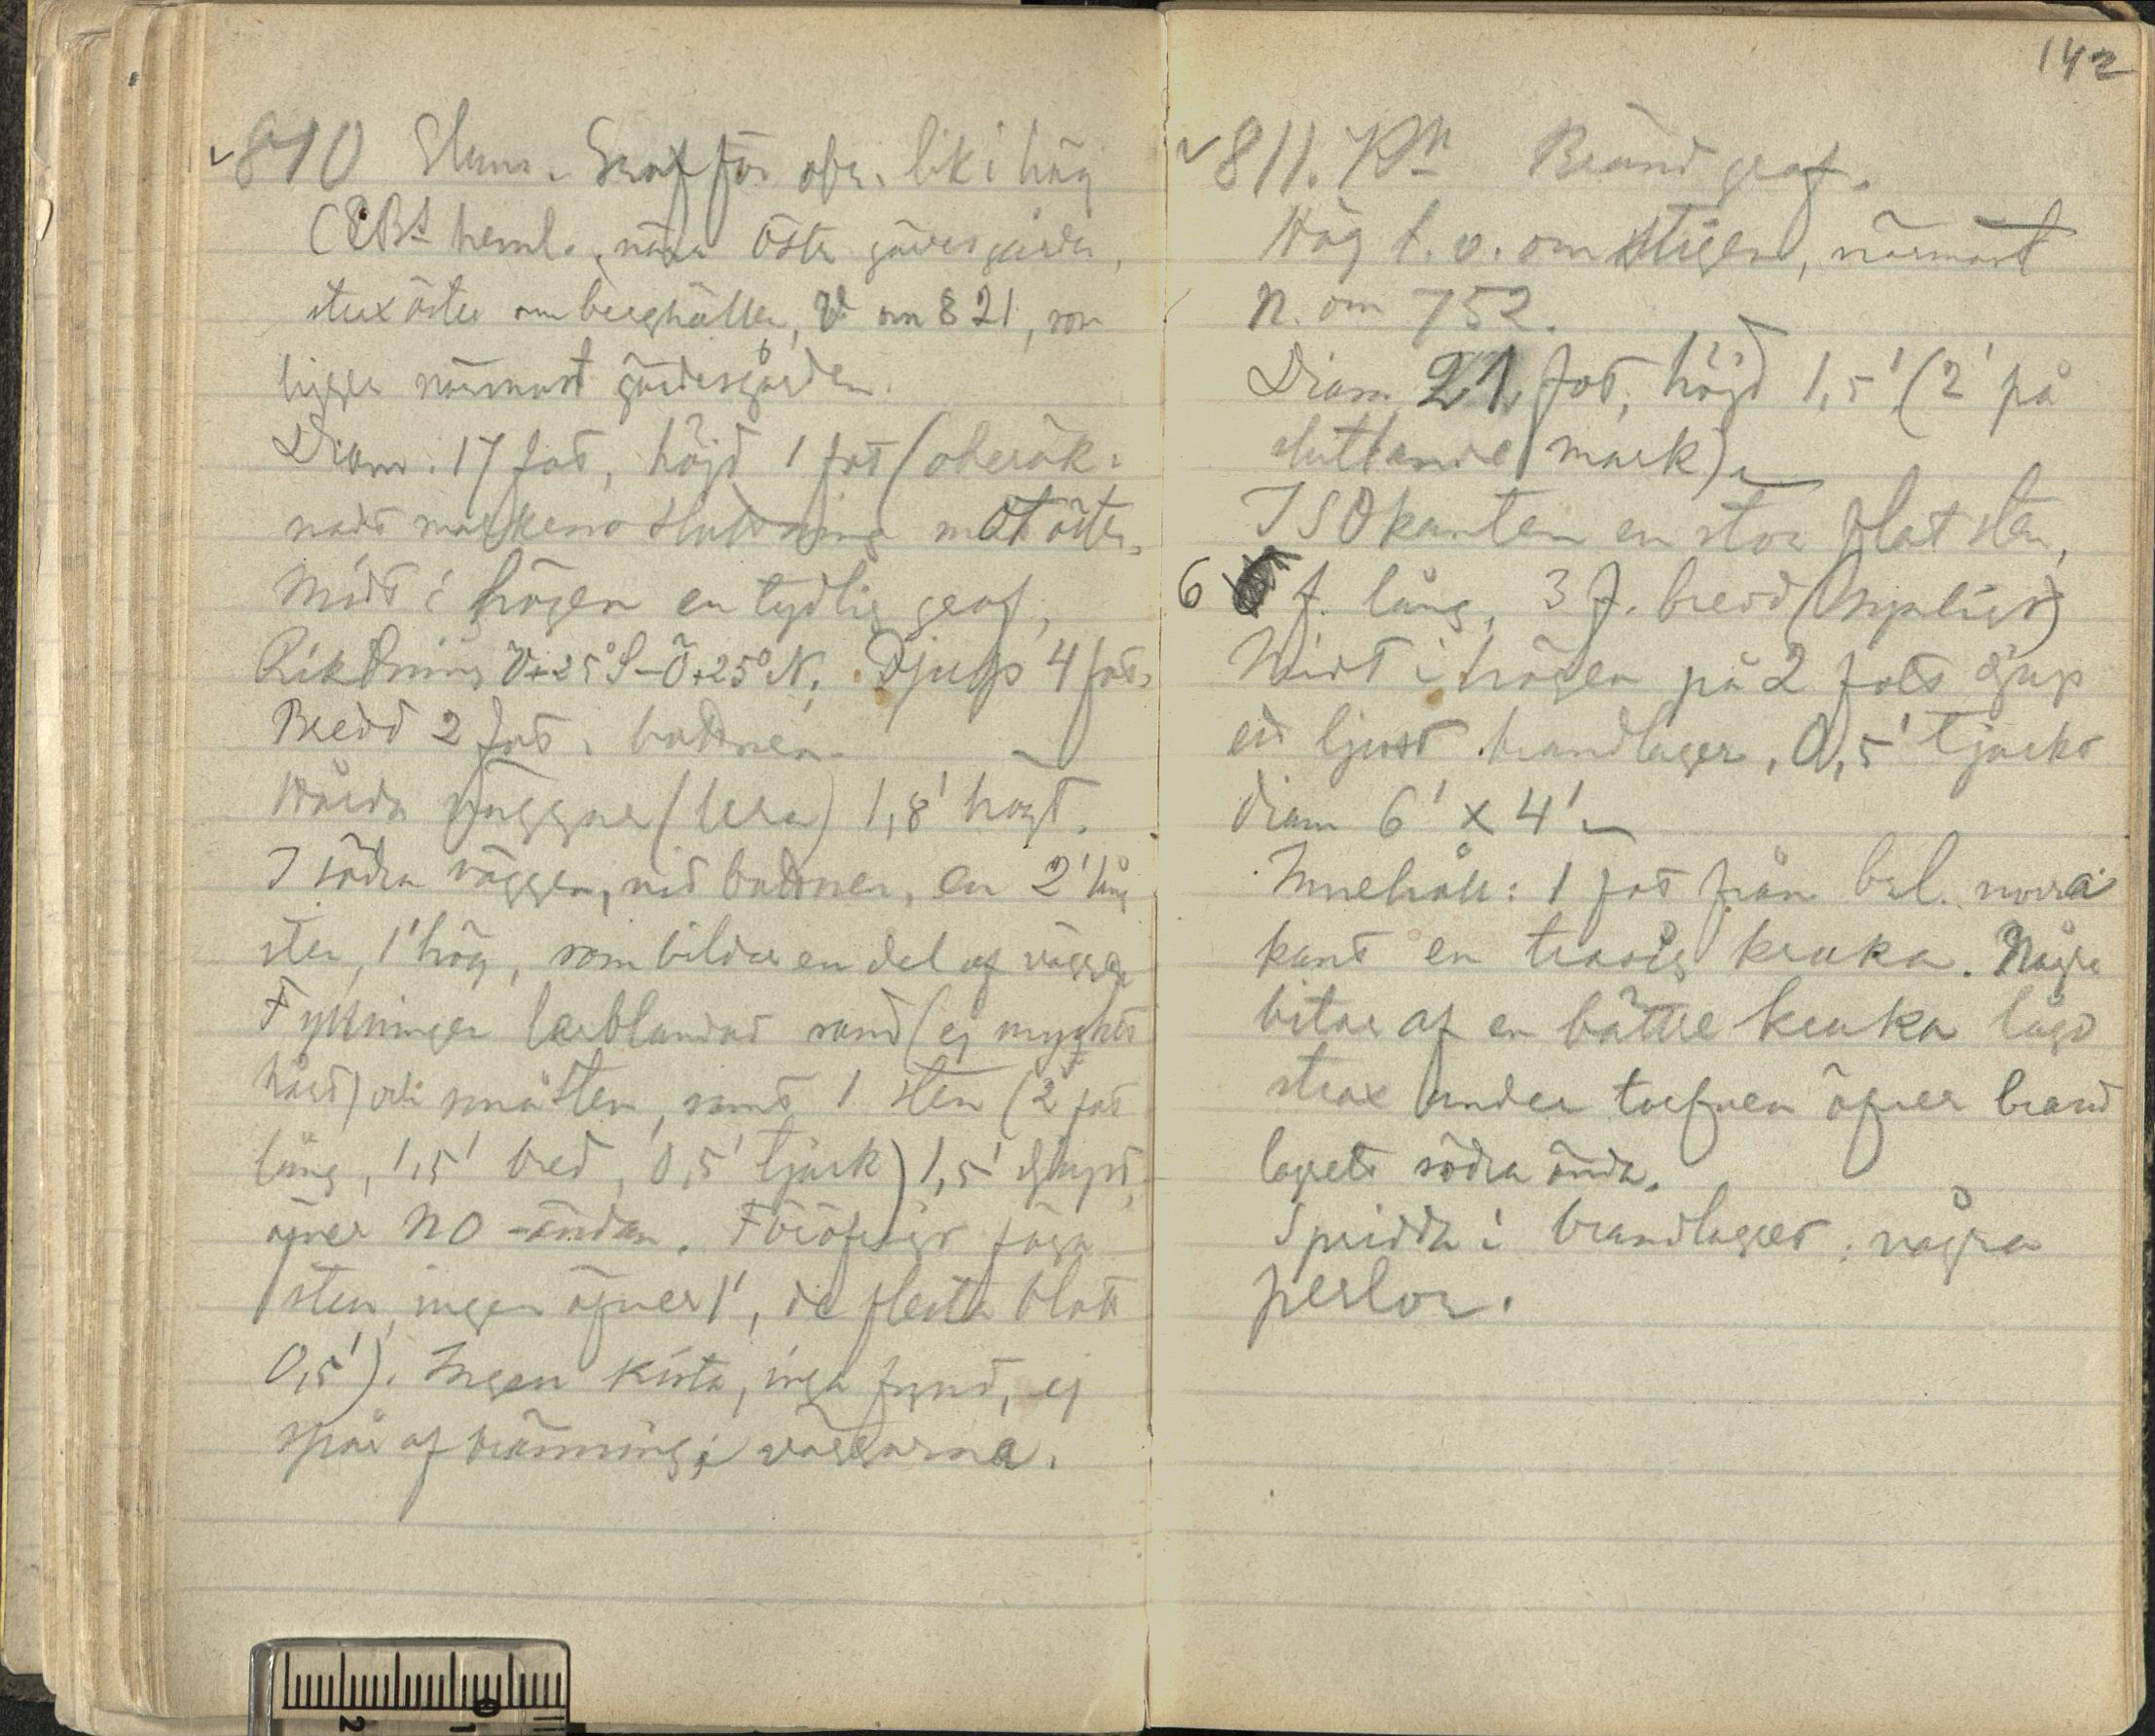 810 Hums. Graf för obr. lik i hög
(EBs heml., nära Östr gärdesgården,
strax öster om berghällen, V om 821, som
ligger närmast gärdesgården.
Diam. 17 fot, höjd 1 fot (oberäk-
nadt markens sluttning mot öster.
Midt i högen en tydlig graf,
Riktning V+25°S–Ö+25°N. Djup 4 fot.
Bredd 2 fot i bottnen.
Hårda väggar (lera) 1,8' högt.
I södra väggen, vid bottnen, en 2' lång
sten, 1' hög, som bildar en del af väggen
Fyllningen lerblandad sand (ej mycket
hård) och småsten, samt 1 sten (2 fot
lång, 1,5' bred, 0,5' tjock) 1,5' djupt,
öfver NO-ändan. Föröfrigt föga
sten, ingen öfver 1', de flesta blott
0,5'). Ingen kista, inga fynd, ej
spår af bränning i väggarna.
142
811. Rn Brandgraf.
Hög t. v. om stigen, närmast
N. om 752.
Diam 21 fot, höjd 1,5' (2' på
sluttande mark).
I SOkanten en stor flat sten,
6 f. lång, 3 f. bred (synligt)
Midt i högen på 2 fots djup
ett ljust brandlager, 0,5' tjockt
diam 6' x 4'
Innehåll: 1 fot från brl. norra
kant en trasig kruka. Några
bitar af en bättre kruka lågo
strax under torfven öfver brand
lagrets södra ända.
Spridda i brandlagret: några
perlor.